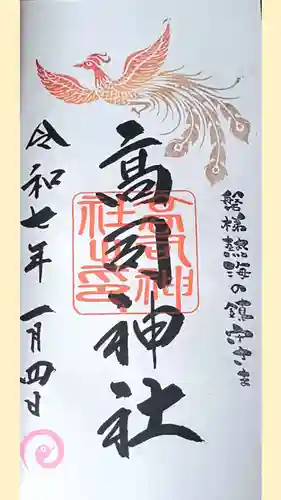 磐梯熱海の鎮守さま
高司神社
高司神社之印
令和七年 一月四日